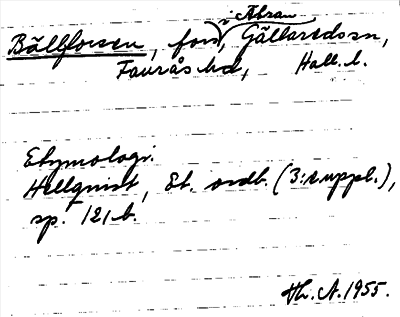 Bällforsen, fors i Ätran, Gällaredssn,
Faurås hd, Hall. l.
Etymologi.
Hellquist, Et. ordb. (3:e uppl.),
sp. 121 b.
Th. A. 1955.